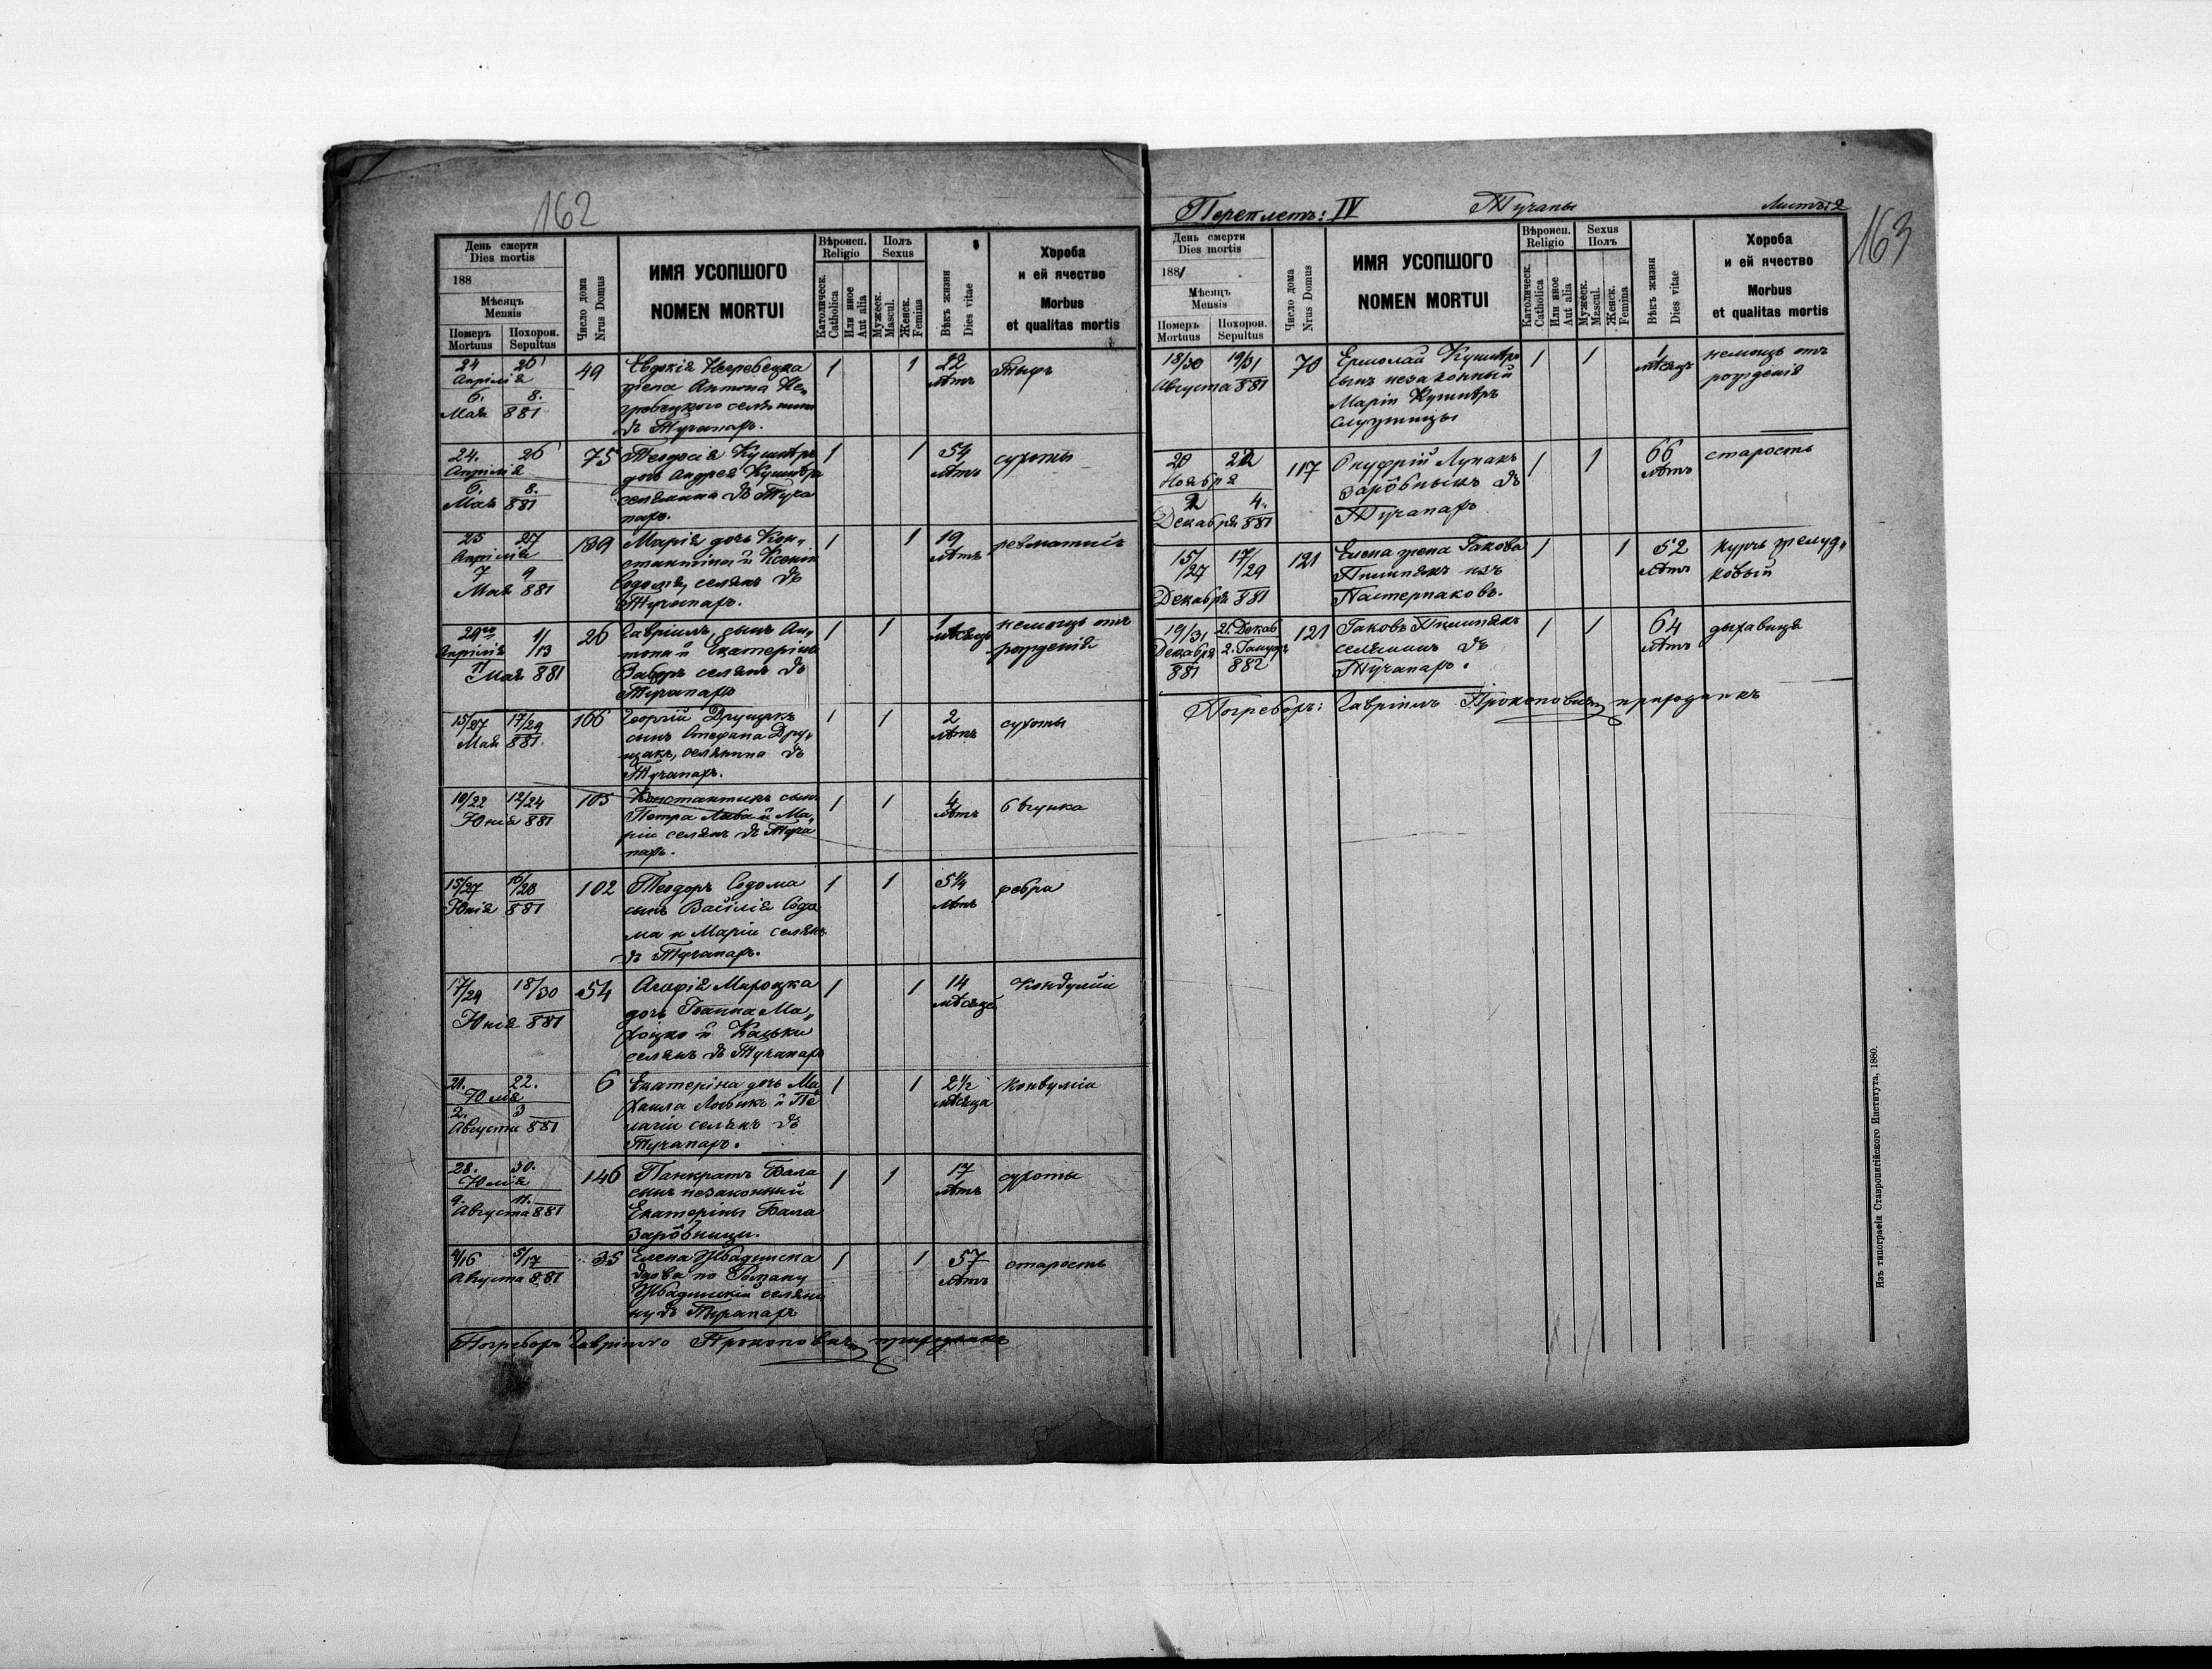 162
День смерти
Dies mortis
188
Мѣсяцъ
Mensis
Померъ
Mortuus
Похорон.
Sepultus
Число дома
Nrus Domus
ИМЯ УСОПШОГО
NOMEN MORTUI
Вѣроисп.
Religio
Католическ.
Catholica
Или иное
Aut alia
Полъ
Sexus
Мужеск.
Mascul.
Женск.
Femina
Вѣкъ жизни
Dies vitae
Хороба
и ей ячество
Morbus
et qualitas mortis
24 26
Апрілія
6. 8.
Мая 881
49
Евдокія Негребецка
жена Антона Не„
гребецкого селянина
въ Тучапахъ.
1 1
22
лѣтъ
Тыфъ
24. 26
Апрілія
6. 8.
Мая 881
75
Теодосія Кушнѣръ
дочь Андрея Кушнѣръ
селянина въ Туча
пахъ.
1 1
54
лѣтъ
сухоты
25 27
Апрілія
7 9
Мая 881
139
Марія дочь Кон„
стантина и Ксеніи
Содома, селянъ въ
Тучапахъ.
1 1
19
лѣтъ
ревматизмъ
29го 1/13
Апрілія
11 Мая 881
26
Гавріилъ, сынъ Ан„
тона и Екатерины
селянъ въ
Тучапахъ
1 1
1
мѣсяцъ
немощь отъ
рожденія
15/27 17/29
Мая 881
166
Георгій Друщакъ
сынъ Стефана Дру„
щакъ, селянина въ
Тучапахъ.
1 1
2
лѣтъ
сухоты
10/22 12/24
Юнія 881
105
Константинъ сынъ
Петра и Ма„
ріи селянъ въ Туча
пахъ.
1 1
4
лѣтъ
обвчука
15/27 16/28
Юнія 881
102
Теодоръ Содома
сынъ Василія Содо
ма и Маріи селянъ
въ Тучапахъ.
1 1
5¼
лѣтъ
фебра
17/29 18/30
Юнія 881
54
Агафія Мароцка
дочь Іоанна Ма„
роцко и Каськи
селянъ въ Тучапахъ
1 1
14
мѣсяцей
Конвулсіи
21. 22.
Юлія
2. 3
Августа 881
6
Екатеріна дочь Ми
хаила и Пе
лагіи селянъ въ
Тучапахъ.
1 1
2½
мѣсяца
Конвулсіи
28. 30.
Юлія
9. 11.
Августа 881
146
Панкратъ Бала
сынъ незаконный
Екатеріны Бала
зарôбници.
1 1
17
лѣтъ
сухоты
4/16 5/17
Августа 881
35
Елена
вдова по Роману
селяни
ну въ Тучапахъ
1 1
57
лѣтъ
старость
Погребохъ Гавріилъ Прокоповичъ приходникъ
Переплетъ: IV Тучапы Листъ: 2
163
День смерти
Dies mortis
1881
Мѣсяцъ
Mensis
Померъ
Mortuus
Похорон.
Sepultus
Число дома
Nrus Domus
ИМЯ УСОПШОГО
NOMEN MORTUI
Вѣроисп.
Religio
Католическ.
Catholica
Или иное
Aut alia
Sexus
Полъ
Мужеск.
Mascul.
Женск.
Femina
Вѣкъ жизни
Dies vitae
Хороба
и ей ячество
Morbus
et qualitas mortis
18/30 19/31
Августа 881
70
Ермолай Кушнѣръ
сынъ незаконный
Маріи Кушнѣръ
служницы
1 1
1
мѣсяцъ
немощь отъ
рожденія
20 22
Ноября
2 4.
Декабря 881
117
Онуфрій Лупакъ
зарôбныкъ въ
Тучапахъ
1 1
66
лѣтъ
старость
15/27 17/29
Декабря 881
121
Елена жена Іакова
Пилипякъ изъ
Пастернаковъ.
1 1
52
лѣтъ
курчъ желуд„
ковый
19/31 21. Декаб
Декабря 2. Januar
881 882
121
Іаковъ Пилипякъ
селянинъ въ
Тучапахъ.
1 1
64
лѣтъ
дыхавиця
Погребохъ: Гавріилъ Прокоповичъ приходникъ
Изъ типографіи Ставропигійского Института, 1880.